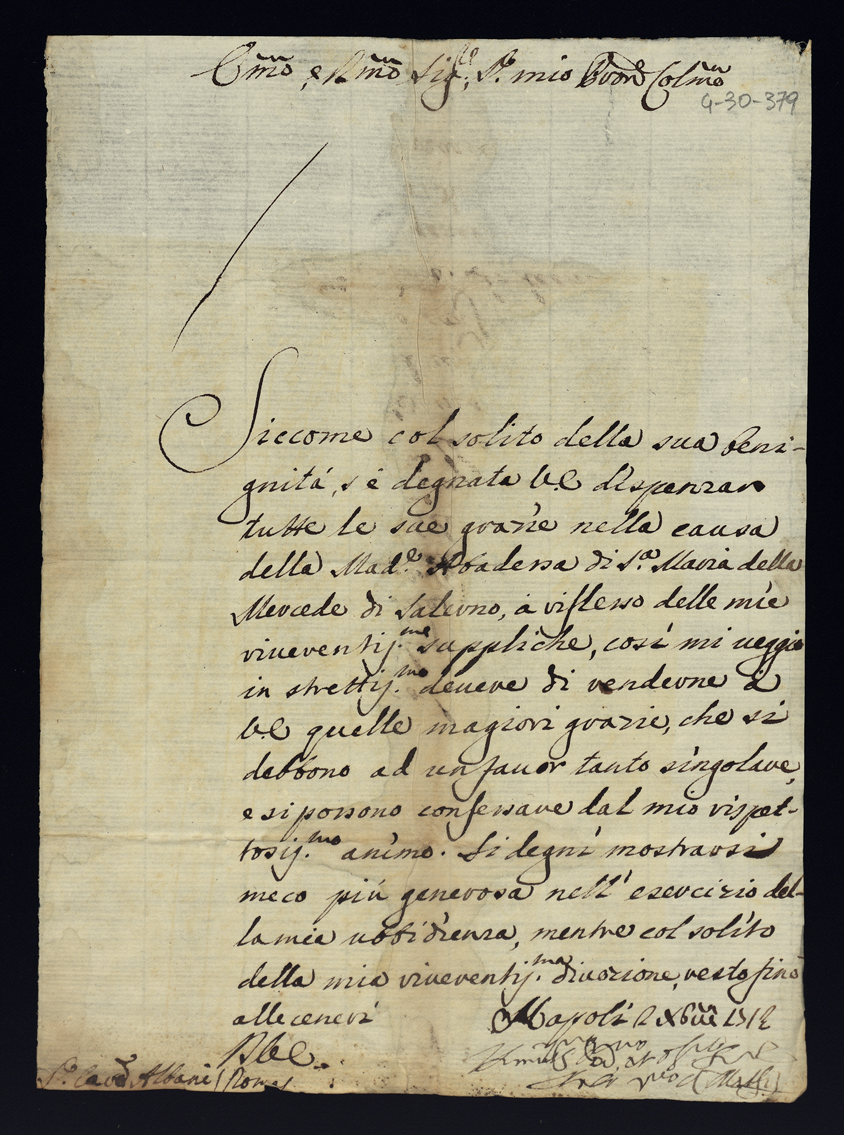 E͞mo, e R͞mo Sig.re, P.e mio P͞ron Col͞mo
4-30-379
Siccome col solito della sua beni-
gnitá, s'é degnata V.E dispenzar
tutte le sue grazie nella causa
della Mad.e Abadessa di S.a Maria della
Mercede di Salerno, á riflesso delle mie
riverentij.me suppliche, cosí mi veggio
in strettij.mo devere di renderne á
V.E quelle magiori grazie, che si
debbono ad un favor tanto singolare,
e si possono confessare dal mio rispet-
tosij.mo animo. Si degni mostrarsi
meco piú generosa nell' esercizio del-
la mia ubbidienza, mentre col solito
della mia riverentij.ma divozione, resto fino
alle ceneri
Napoli 2 X͞bre 1712
Albani
Roma